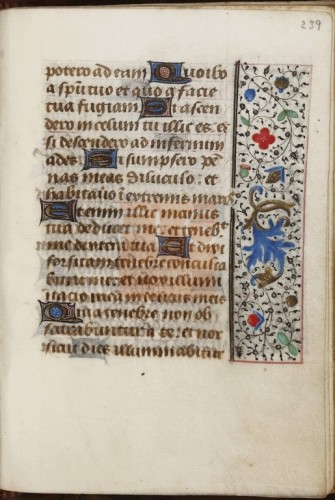 239
potero ad eam Quo ibo
a sp̄u tuo et quo a facie
tua fugiam Si ascen
dero in celum tu illic es et
si descendero ad infernum
ades Si sumpsero pe
nas meas diluculo : et
habitavo ī extremis maris
Etenim illic manus
tua deducet me et teneb
me dextera tua Et dixi
forsitan tenebre conculca
bunt me et nox illumi
natio mea in deliciis meis
Quia tenebre non ob
scurabuntur a te et nox
sicut dies illuminabitur